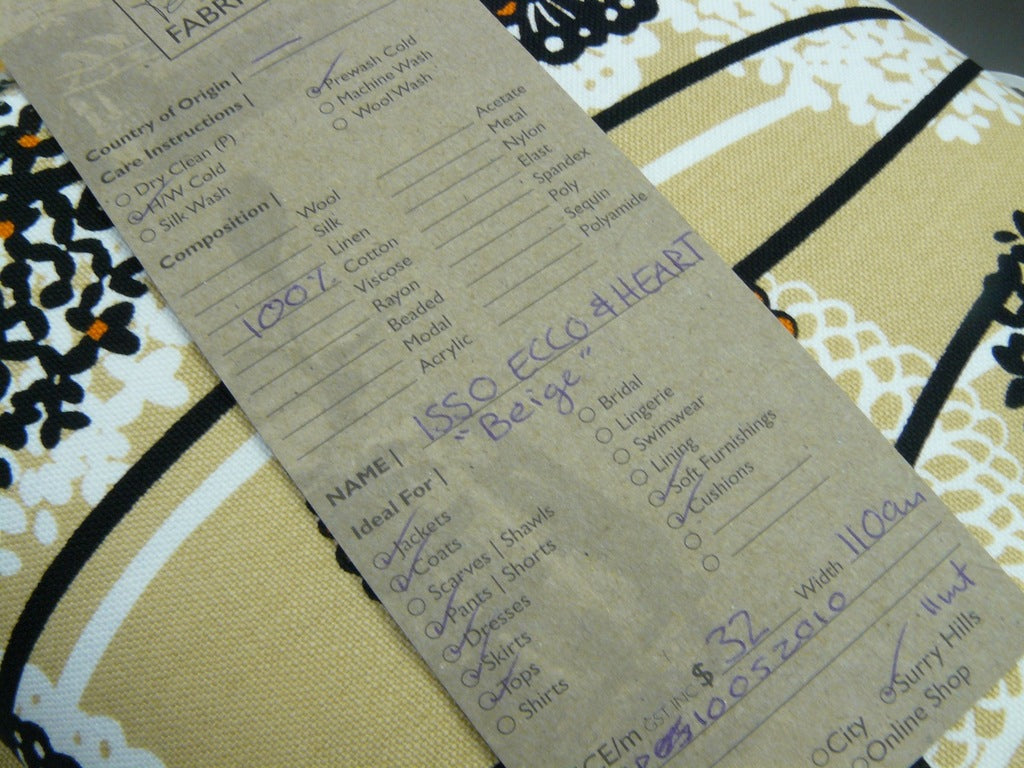 FABRI
Country of Origin |
Care Instructions |
Dry Clean (P)
H/W Cold
Silk Wash
Prewash Cold
Machine Wash
Wool Wash
Composition |
Wool
Silk
Linen
100% Cotton
Viscose
Rayon
Beaded
Modal
Acrylic
Acetate
Metal
Nylon
Elast
Spandex
Poly
Sequin
Polyamide
NAME | ISSO ECCO & HEART
"Beige"
Ideal For |
Jackets
Coats
Scarves | Shawls
Pants | Shorts
Dresses
Skirts
Tops
Shirts
Bridal
Lingerie
Swimwear
Lining
Soft Furnishings
Cushions
CE/m GST INC $ 32 Width 110cm
11mt
City
Surry Hills
Online Shop